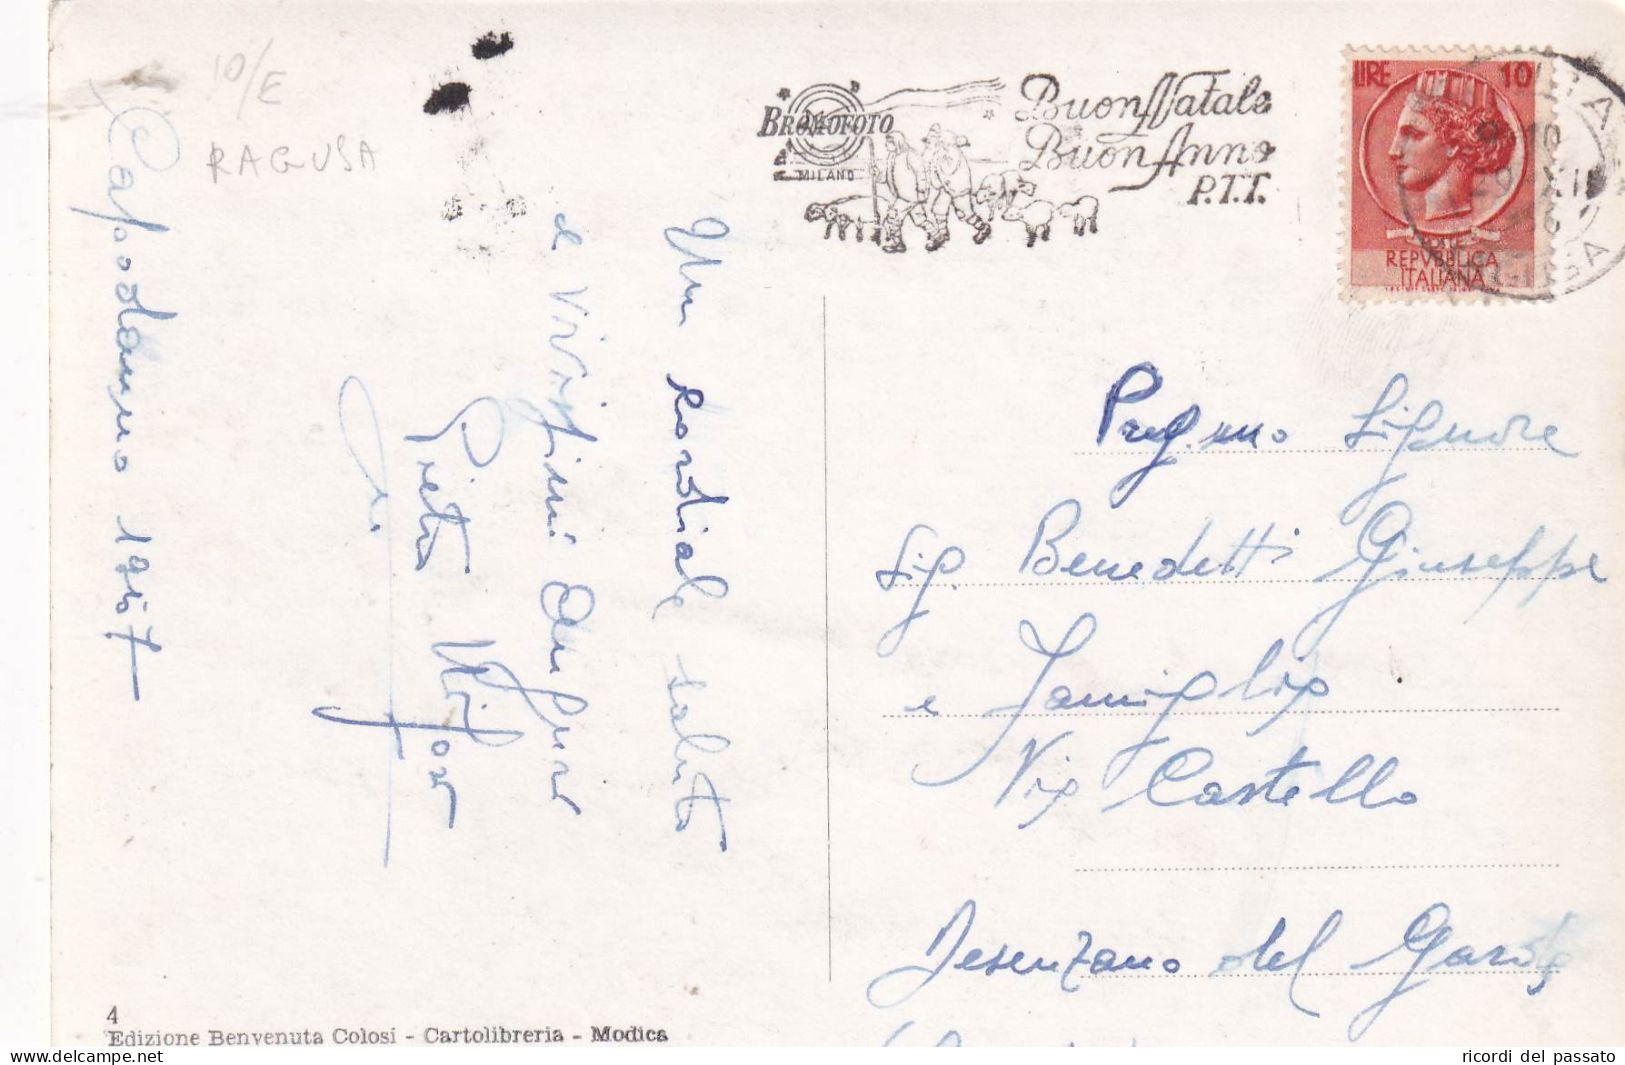 10/E
RAGUSA
BROMOFOTO
MILANO
Buon Natale
Buon Anno
P.T.T.
LIRE 10
REPVBBLICA
ITALIANA
Capodanno 1957
Un cordiale saluto
e vivissimi auguri
Preg.mo Signore
Sig. Benedetti Giuseppe
e Famiglia
Via Castello
Desenzano del Garda
4
Edizione Benvenuta Colosi - Cartolibreria - Modica
ricordi del passato
delcampe.net